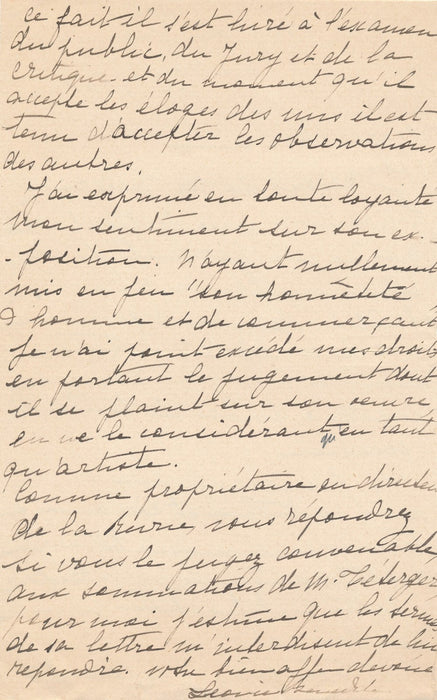 ce fait il s'est livré à l'examen
du public, du Jury et de la
critique et du moment qu'il
accepte les éloges des uns il est
tenu d'accepter les observations
des autres.
J'ai exprimé en toute loyauté
mon sentiment sur son ex-
-position. N'ayant nullement
mis en jeu "son honnêteté
d'homme et de commerçant
je n'ai point excédé mes droits
en portant le jugement dont
il se plaint sur son œuvre
en ne le considérant qu'en tant
qu'artiste.
Comme propriétaire et directeur
de la Revue vous repondrez
si vous le jugez convenable,
aux sommations de Mr
pour moi j'estime que les termes
de sa lettre m'interdisent de lui
repondre. votre bien affec devoué